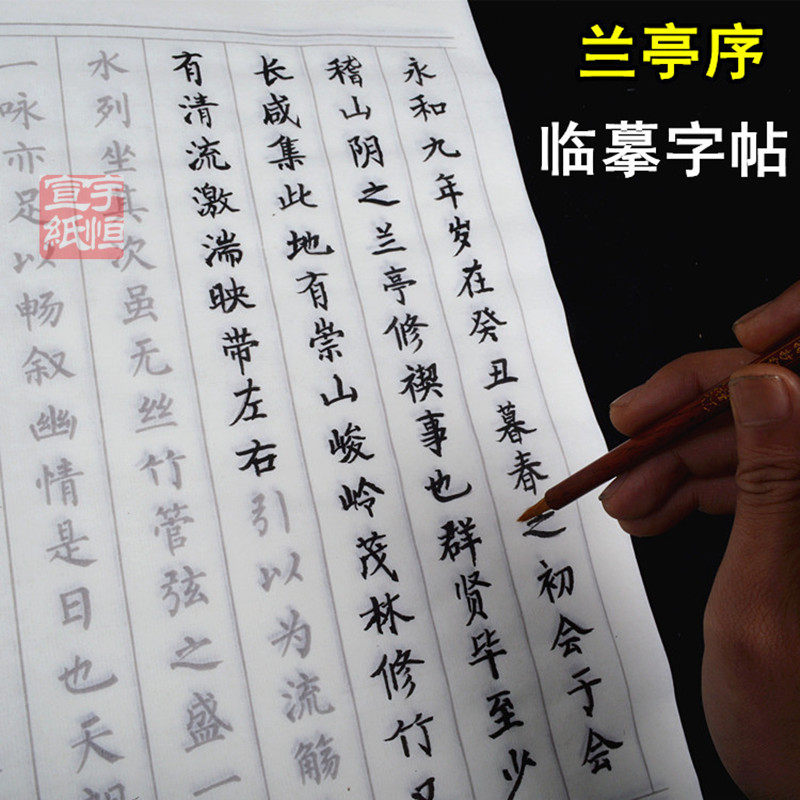 兰亭序
临摹字帖
永和九年岁在癸丑暮春之初会于会
稽山阴之兰亭修禊事也群贤毕至少
长咸集此地有崇山峻岭茂林修竹又
有清流激湍映带左右引以为流觞
水列坐其次虽无丝竹管弦之盛一
一咏亦足以畅叙幽情是日也天
于恒
宣紙